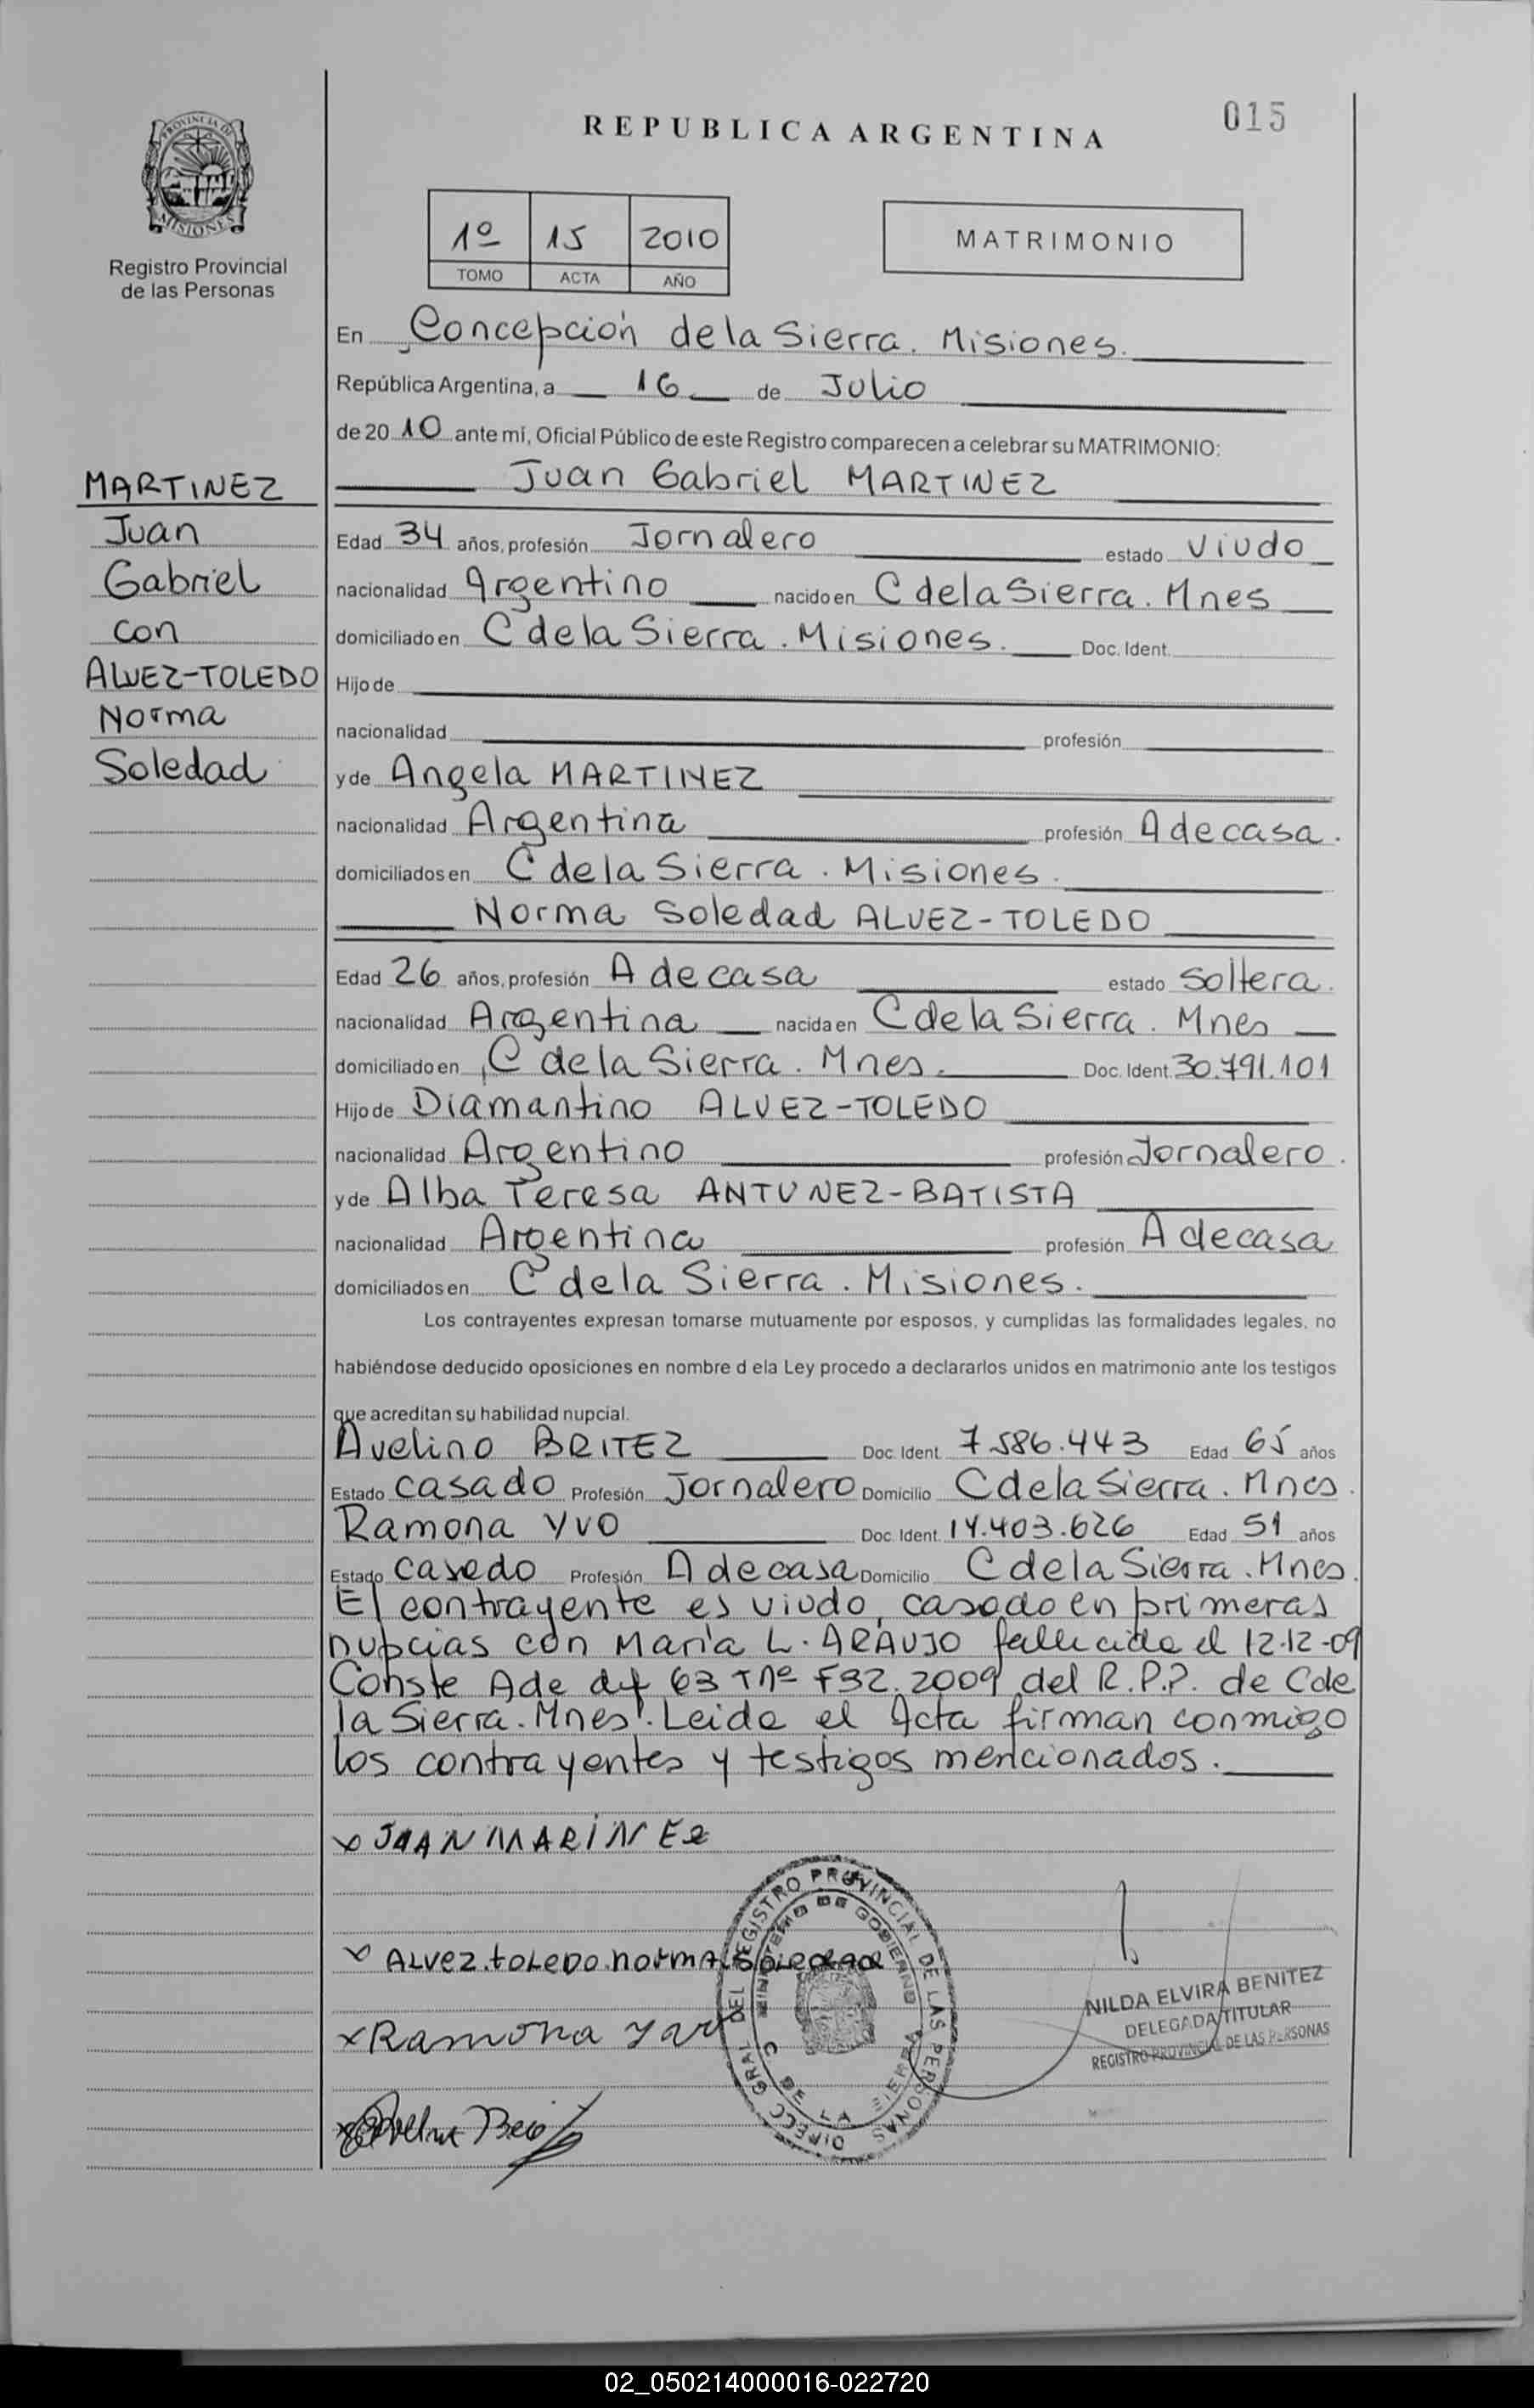 015
REPUBLICA ARGENTINA
PROVINCIA DE MISIONES
Registro Provincial
de las Personas
1º 15 2010
TOMO ACTA AÑO
MATRIMONIO
En Concepción de la Sierra. Misiones.
República Argentina, a 16 de Julio
de 20 10 ante mí, Oficial Público de este Registro comparecen a celebrar su MATRIMONIO:
MARTINEZ
Juan
Gabriel
con
ALVEZ-TOLEDO
Norma
Soledad
Juan Gabriel MARTINEZ
Edad 34 años, profesión Jornalero estado Viudo
nacionalidad Argentino nacido en C de la Sierra. Mnes
domiciliado en C de la Sierra. Misiones. Doc. Ident.
Hijo de
nacionalidad profesión
y de Angela MARTINEZ
nacionalidad Argentina profesión A de casa.
domiciliados en C de la Sierra. Misiones.
Norma Soledad ALVEZ-TOLEDO
Edad 26 años, profesión A de casa estado Soltera.
nacionalidad Argentina nacida en C de la Sierra. Mnes
domiciliado en C de la Sierra. Mnes. Doc. Ident. 30.791.101
Hijo de Diamantino ALVEZ-TOLEDO
nacionalidad Argentino profesión Jornalero.
y de Alba Teresa ANTUNEZ-BATISTA
nacionalidad Argentina profesión A de casa
domiciliados en C de la Sierra. Misiones.
Los contrayentes expresan tomarse mutuamente por esposos, y cumplidas las formalidades legales, no
habiéndose deducido oposiciones en nombre d ela Ley procedo a declararlos unidos en matrimonio ante los testigos
que acreditan su habilidad nupcial.
Avelino BRITEZ Doc. Ident. 7.586.443 Edad 65 años
Estado Casado Profesión Jornalero Domicilio C de la Sierra. Mnes.
Ramona YVO Doc. Ident. 14.403.626 Edad 51 años
Estado Casado Profesión A de casa Domicilio C de la Sierra. Mnes.
El contrayente es viudo, casado en primeras
nupcias con María L. ARAUJO fallecida el 12-12-09
Conste A de def 63 T 1º F32. 2009 del R.P.P. de C de
la Sierra. Mnes. Leida el Acta firman conmigo
los contrayentes y testigos mencionados.
x JUAN MARINEz
x ALVEZ.toLEDO.norma Soledad
x Ramona
DIRECC GRAL DEL REGISTRO PROVINCIAL DE LAS PERSONAS
MINISTERIO DE GOBIERNO
C. DE LA SIERRA
NILDA ELVIRA BENITEZ
DELEGADA TITULAR
REGISTRO PROVINCIAL DE LAS PERSONAS
02_050214000016-022720